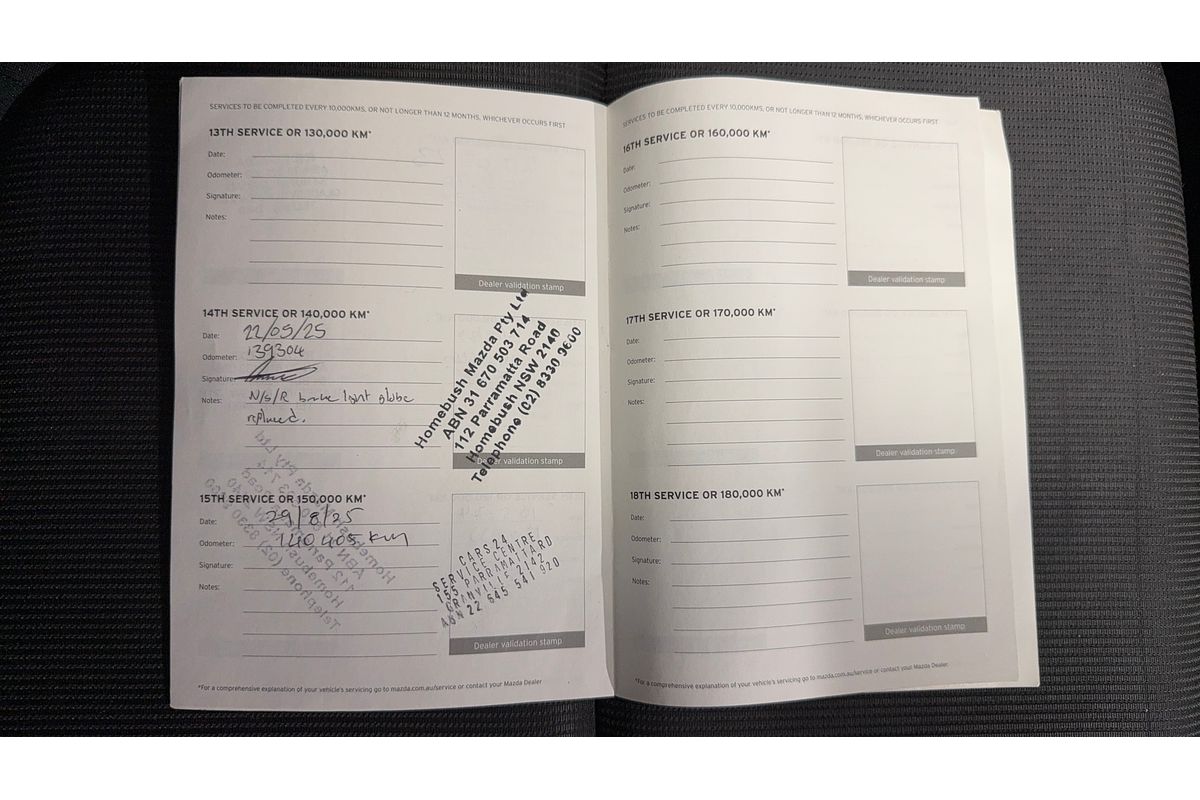 SERVICES TO BE COMPLETED EVERY 10,000KMS, OR NOT LONGER THAN 12 MONTHS, WHICHEVER OCCURS FIRST
13TH SERVICE OR 130,000 KM*
Date:
Odometer:
Signature:
Notes:
Dealer validation stamp
14TH SERVICE OR 140,000 KM*
Date: 22/05/25
Odometer: 139304
Signature:
Notes: N/S/R brake light globe
replaced.
Homebush Mazda Pty Ltd
ABN 31 670 503 714
112 Parramatta Road
Homebush NSW 2140
Telephone (02) 8330 9600
Dealer validation stamp
15TH SERVICE OR 150,000 KM*
Date: 29/8/25
Odometer: 140405 KM
Signature:
Notes:
CARS24
SERVICE CENTRE
155 PARRAMATTA RD
GRANVILLE 2142
ABN 22 645 541 920
Dealer validation stamp
*For a comprehensive explanation of your vehicle's servicing go to mazda.com.au/service or contact your Mazda Dealer
SERVICES TO BE COMPLETED EVERY 10,000KMS, OR NOT LONGER THAN 12 MONTHS, WHICHEVER OCCURS FIRST
16TH SERVICE OR 160,000 KM*
Date:
Odometer:
Signature:
Notes:
Dealer validation stamp
17TH SERVICE OR 170,000 KM*
Date:
Odometer:
Signature:
Notes:
Dealer validation stamp
18TH SERVICE OR 180,000 KM*
Date:
Odometer:
Signature:
Notes:
Dealer validation stamp
*For a comprehensive explanation of your vehicle's servicing go to mazda.com.au/service or contact your Mazda Dealer.